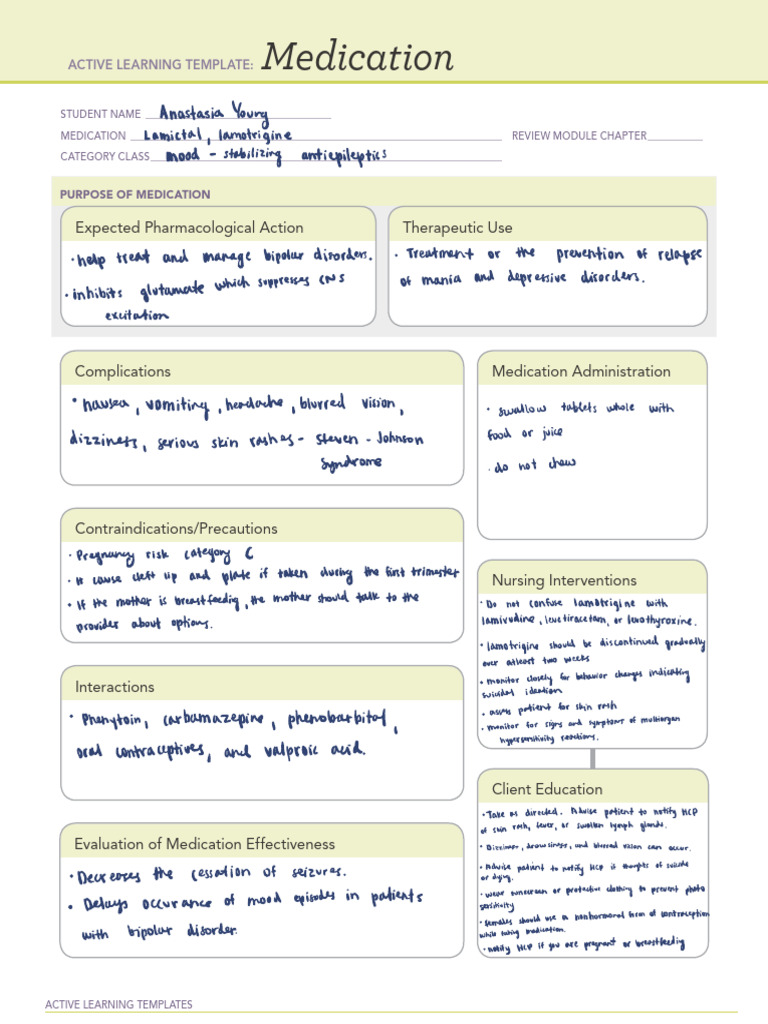 ACTIVE LEARNING TEMPLATE: Medication
STUDENT NAME Anastasia Young
MEDICATION Lamictal, lamotrigine
REVIEW MODULE CHAPTER
CATEGORY CLASS mood - stabilizing antiepileptics
PURPOSE OF MEDICATION
Expected Pharmacological Action
• help treat and manage bipolar disorders.
• inhibits glutamate which suppresses CNS
excitation
Therapeutic Use
• Treatment or the prevention of relapse
of mania and depressive disorders.
Complications
• nausea, vomiting, headache, blurred vision,
dizziness, serious skin rashes - Steven - Johnson
Syndrome
Medication Administration
• swallow tablets whole with
food or juice
• do not chew
Contraindications/Precautions
• Pregnancy risk category C
• Is cause cleft lip and plate if taken during the first trimester
• If the mother is breastfeeding, the mother should talk to the
provider about options.
Nursing Interventions
• Do not confuse lamotrigine with
lamivudine, levetiracetam, or levothyroxine.
• lamotrigine should be discontinued gradually
over atleast two weeks
• monitor closely for behavior changes indicating
suicidal ideation
• assess patient for skin rash
• monitor for signs and symptoms of multiorgan
hypersensitivity reactions.
Interactions
• Phenytoin, carbamazepine, phenobarbital,
oral contraceptives, and valproic acid.
Client Education
• Take as directed. Advise patient to notify HCP
of skin rash, fever, or swollen lymph glands.
• Dizziness, drowsiness, and blurred vision can occur.
• Advise patient to notify HCP is thoughts of suicide
or dying.
• wear sunscreen or protective clothing to prevent photo
sensitivity
• females should use a nonhormonal form of contraception
while taking medication.
• notify HCP if you are pregnant or breastfeeding
Evaluation of Medication Effectiveness
• Decreases the cessation of seizures.
• Delays occurance of mood episodes in patients
with bipolar disorder.
ACTIVE LEARNING TEMPLATES